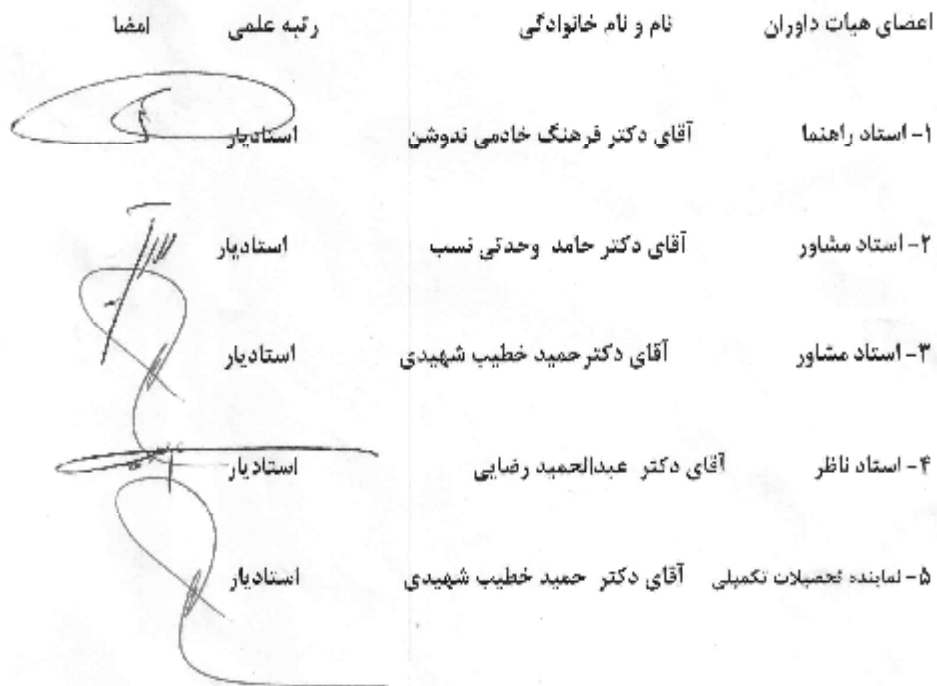 اعضای هیات داوران نام و نام خانوادگی رتبه علمی امضا
۱- استاد راهنما آقای دکتر فرهنگ خادمی ندوشن استادیار
۲- استاد مشاور آقای دکتر حامد وحدتی نسب استادیار
۳- استاد مشاور آقای دکتر حمید خطیب شهیدی استادیار
۴- استاد ناظر آقای دکتر عبدالحمید رضایی استادیار
۵- نماینده تحصیلات تکمیلی آقای دکتر حمید خطیب شهیدی استادیار